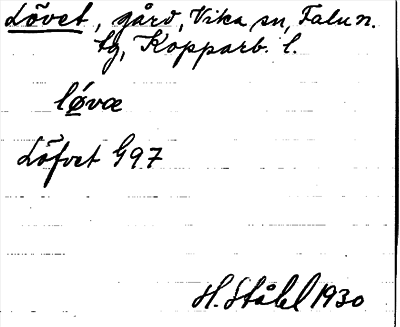 Lövet, gård, Vika sn, Falu n.
tg, Kopparb. l.
lǿvæ
Löfvet G97
H. Ståhl 1930